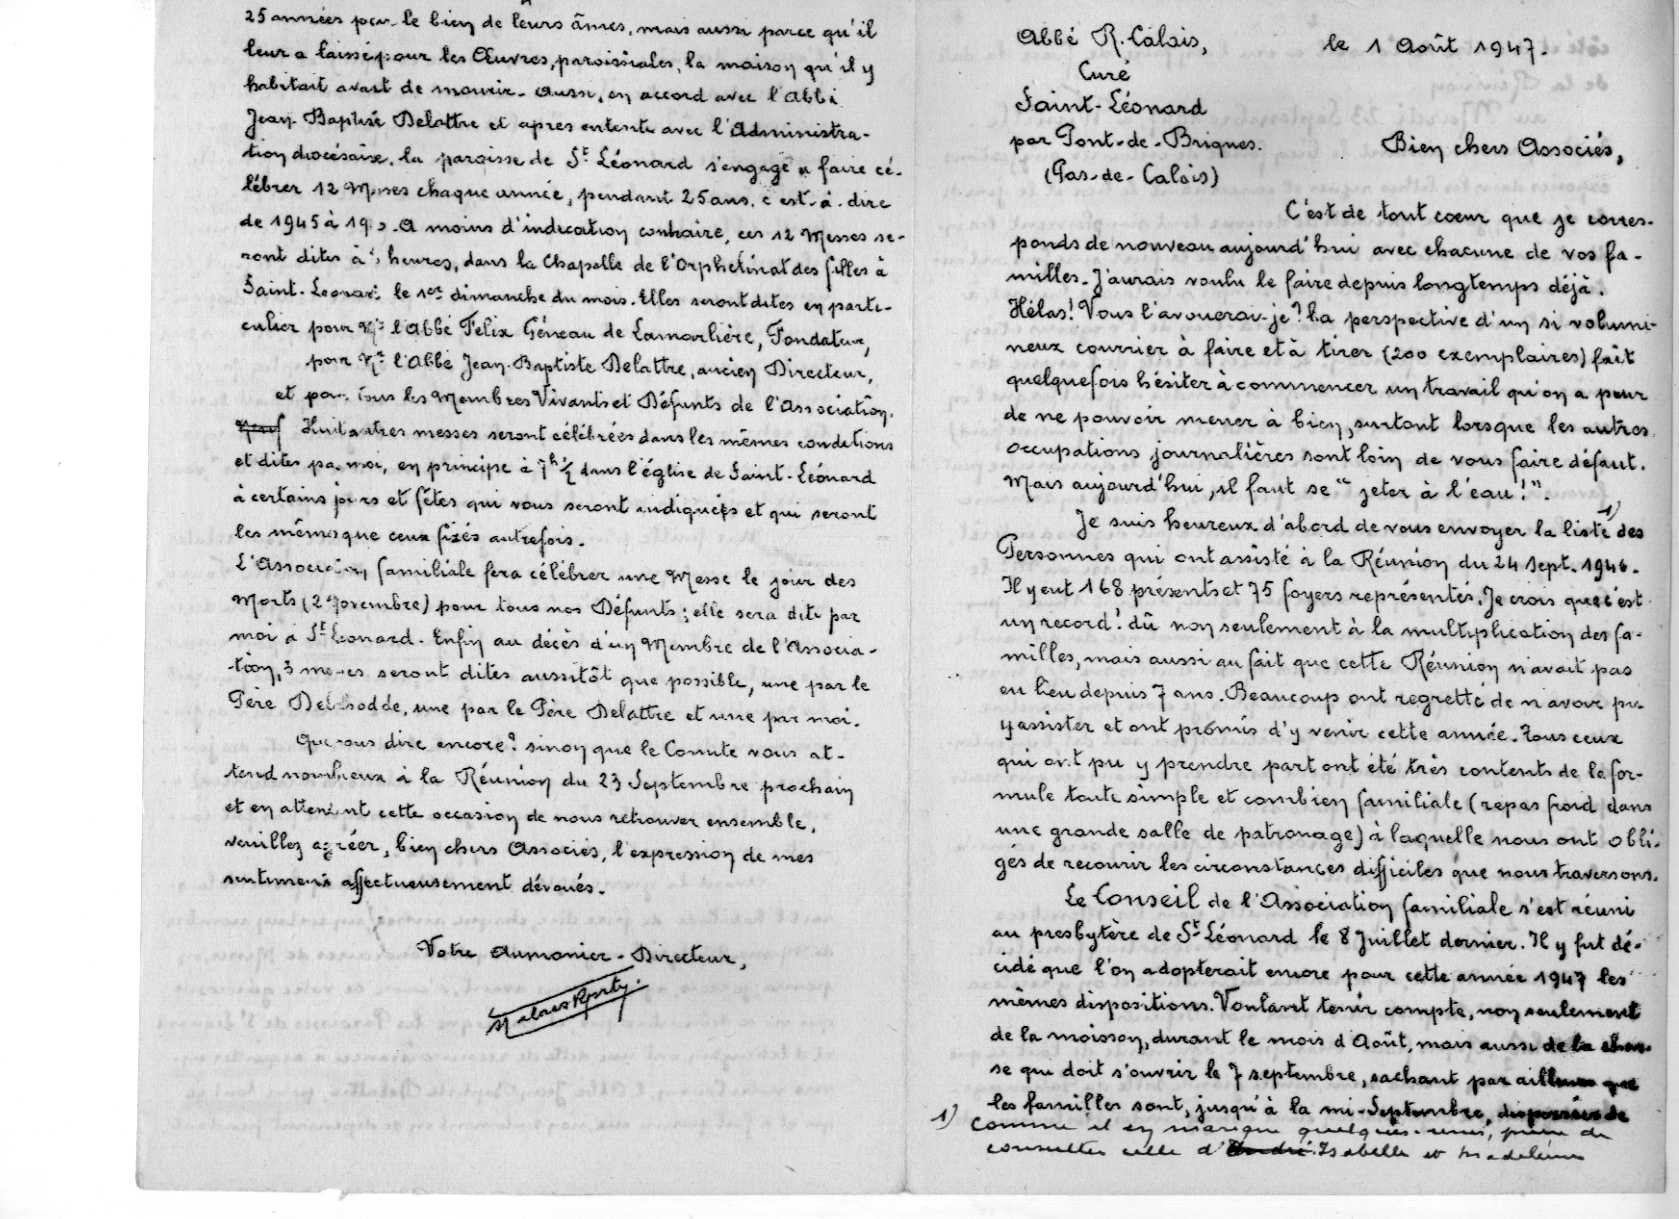 25 années pour le bien de leurs âmes, mais aussi parce qu'il
leur a laissé pour les Œuvres, paroissiales, la maison qu'il y
habitait avant de mourir. Aussi, en accord avec l'Abbé
Jean-Baptiste Delattre et après entente avec l'Administra-
tion diocésaine, la paroisse de St Léonard s'engage à faire cé-
lébrer 12 Messes chaque année, pendant 25 ans, c'est-à-dire
de 1945 à 19. A moins d'indication contraire, ces 12 Messes se-
ront dites à heures, dans la Chapelle de l'Orphelinat des filles à
Saint-Léonard le 1er dimanche du mois. Elles seront dites en parti-
culier pour Mr l'Abbé Félix Géneau de Lamarlière, Fondateur,
pour Mr l'Abbé Jean-Baptiste Delattre, ancien Directeur,
et pour tous les Membres Vivants et Défunts de l'Association.
Huit autres messes seront célébrées dans les mêmes conditions
et dites par moi, en principe à 7h ½ dans l'église de Saint-Léonard
à certains jours et fêtes qui vous seront indiqués et qui seront
les mêmes que ceux fixés autrefois.
L'Association familiale fera célébrer une Messe le jour des
Morts (2 Novembre) pour tous nos Défunts; elle sera dite par
moi à St Léonard. Enfin au décès d'un Membre de l'Associa-
-tion, 3 messes seront dites aussitôt que possible, une par le
Père, une par le Père Delattre et une par moi.
Que vous dire encore? sinon que le Comité vous at-
tend nombreux à la Réunion du 23 Septembre prochain
et en attendant cette occasion de nous retrouver ensemble,
veuillez agréer, bien chers Associés, l'expression de mes
sentiments affectueusement dévoués.
Votre Aumonier-Directeur,
Abbé R. Calais,
le 1 Août 1947.
Curé
Saint-Léonard
par Pont-de-Briques.
(Pas-de-Calais)
Bien chers Associés,
C'est de tout cœur que je corres-
ponds de nouveau aujourd'hui avec chacune de vos fa-
milles. J'aurais voulu le faire depuis longtemps déjà.
Hélas! Vous l'avouerai-je? La perspective d'un si volumi-
neux courrier à faire et à tirer (200 exemplaires) fait
quelquefois hésiter à commencer un travail qu'on a peur
de ne pouvoir mener à bien, surtout lorsque les autres
occupations journalières sont loin de vous faire défaut.
Mais aujourd'hui, il faut se "jeter à l'eau!".
Je suis heureux d'abord de vous envoyer la liste 1) des
Personnes qui ont assisté à la Réunion du 24 Sept. 1946.
Il y eut 168 présents et 75 foyers représentés. Je crois que c'est
un record! dû non seulement à la multiplication des fa-
milles, mais aussi au fait que cette Réunion n'avait pas
eu lieu depuis 7 ans. Beaucoup ont regretté de n'avoir pu
y assister et ont promis d'y venir cette année. Tous ceux
qui ont pu y prendre part ont été très contents de la for-
mule toute simple et combien familiale (repas froid dans
une grande salle de patronage) à laquelle nous ont obli-
gés de recourir les circonstances difficiles que nous traversons.
Le Conseil de l'Association familiale s'est réuni
au presbytère de St Léonard le 8 Juillet dernier. Il y fut dé-
cidé que l'on adopterait encore pour cette année 1947 les
mêmes dispositions. Voulant tenir compte, non seulement
de la moisson, durant le mois d'Août, mais aussi de la chas-
se qui doit s'ouvrir le 7 septembre, sachant par ailleurs que
les familles sont, jusqu'à la mi-Septembre, dispersées de
1) Comme il en manque quelques-unes, prière de
consulter celle d'André Isabelle et Madeleine